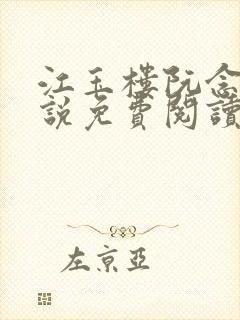 江玉樓阮念
説免費閱讀
左京亞